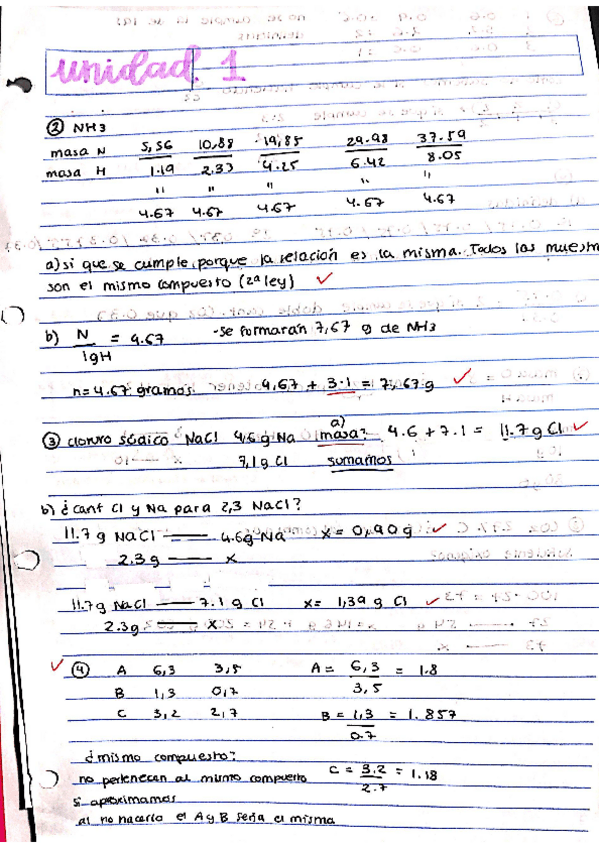 unidad 1
② NH3
masa N 5,56 10,88 19,85 29.98 37.59
masa H 1.19 2.33 4.25 6.42 8.05
" " " " "
4.67 4.67 4.67 4.67 4.67
a) si que se cumple, porque la relación es la misma. Todos las muestr
son el mismo compuesto (2ª ley) ✓
b) N / 1gH = 4.67 -se formaran 7,67 g de NH3
n = 4.67 gramos. 4,67 + 3·1 = 7,67g ✓
③ cloruro sódico NaCl 4,6 g Na a) masa? 4.6 + 7.1 = 11.7 g Cl ✓
7,1 g Cl sumamos
b) ¿cant Cl y Na para 2,3 NaCl?
11.7 g NaCl —— 4.6g Na x = 0,90 g ✓
2.3 g —— x
11.7g NaCl —— 7.1 g Cl x= 1,39 g Cl ✓
2.3g —— x
✓ ④ A 6,3 3,5 A = 6,3 / 3,5 = 1.8
B 1,3 0,7
C 3,2 2,7 B = 1,3 / 0.7 = 1.857
¿mismo compuesto?
no pertenecan al mismo compuesto C = 3.2 / 2.7 = 1.18
si aproximamos
al no hacerlo el A y B seria el misma